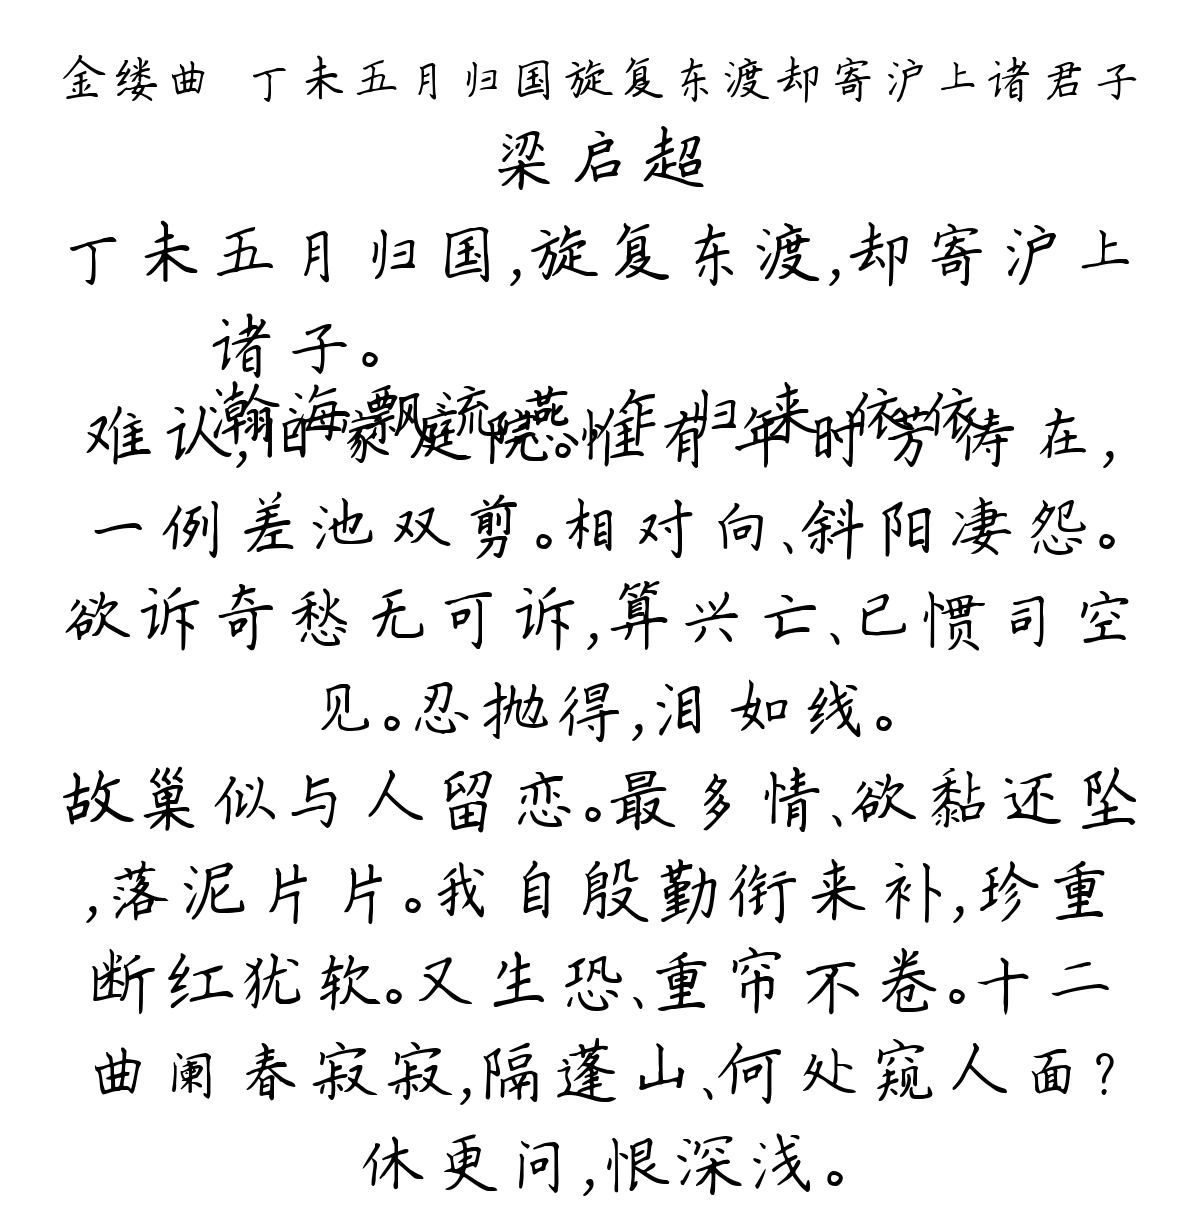 金缕曲 丁未五月归国旋复东渡却寄沪上诸君子
梁启超
丁未五月归国,旋复东渡,却寄沪上
诸子。
瀚海飘流燕。乍归来、依依
难认,旧家庭院。惟有年时芳俦在,
一例差池双剪。相对向、斜阳凄怨。
欲诉奇愁无可诉,算兴亡、已惯司空
见。忍抛得,泪如线。
故巢似与人留恋。最多情、欲黏还坠
,落泥片片。我自殷勤衔来补,珍重
断红犹软。又生恐、重帘不卷。十二
曲阑春寂寂,隔蓬山、何处窥人面?
休更问,恨深浅。